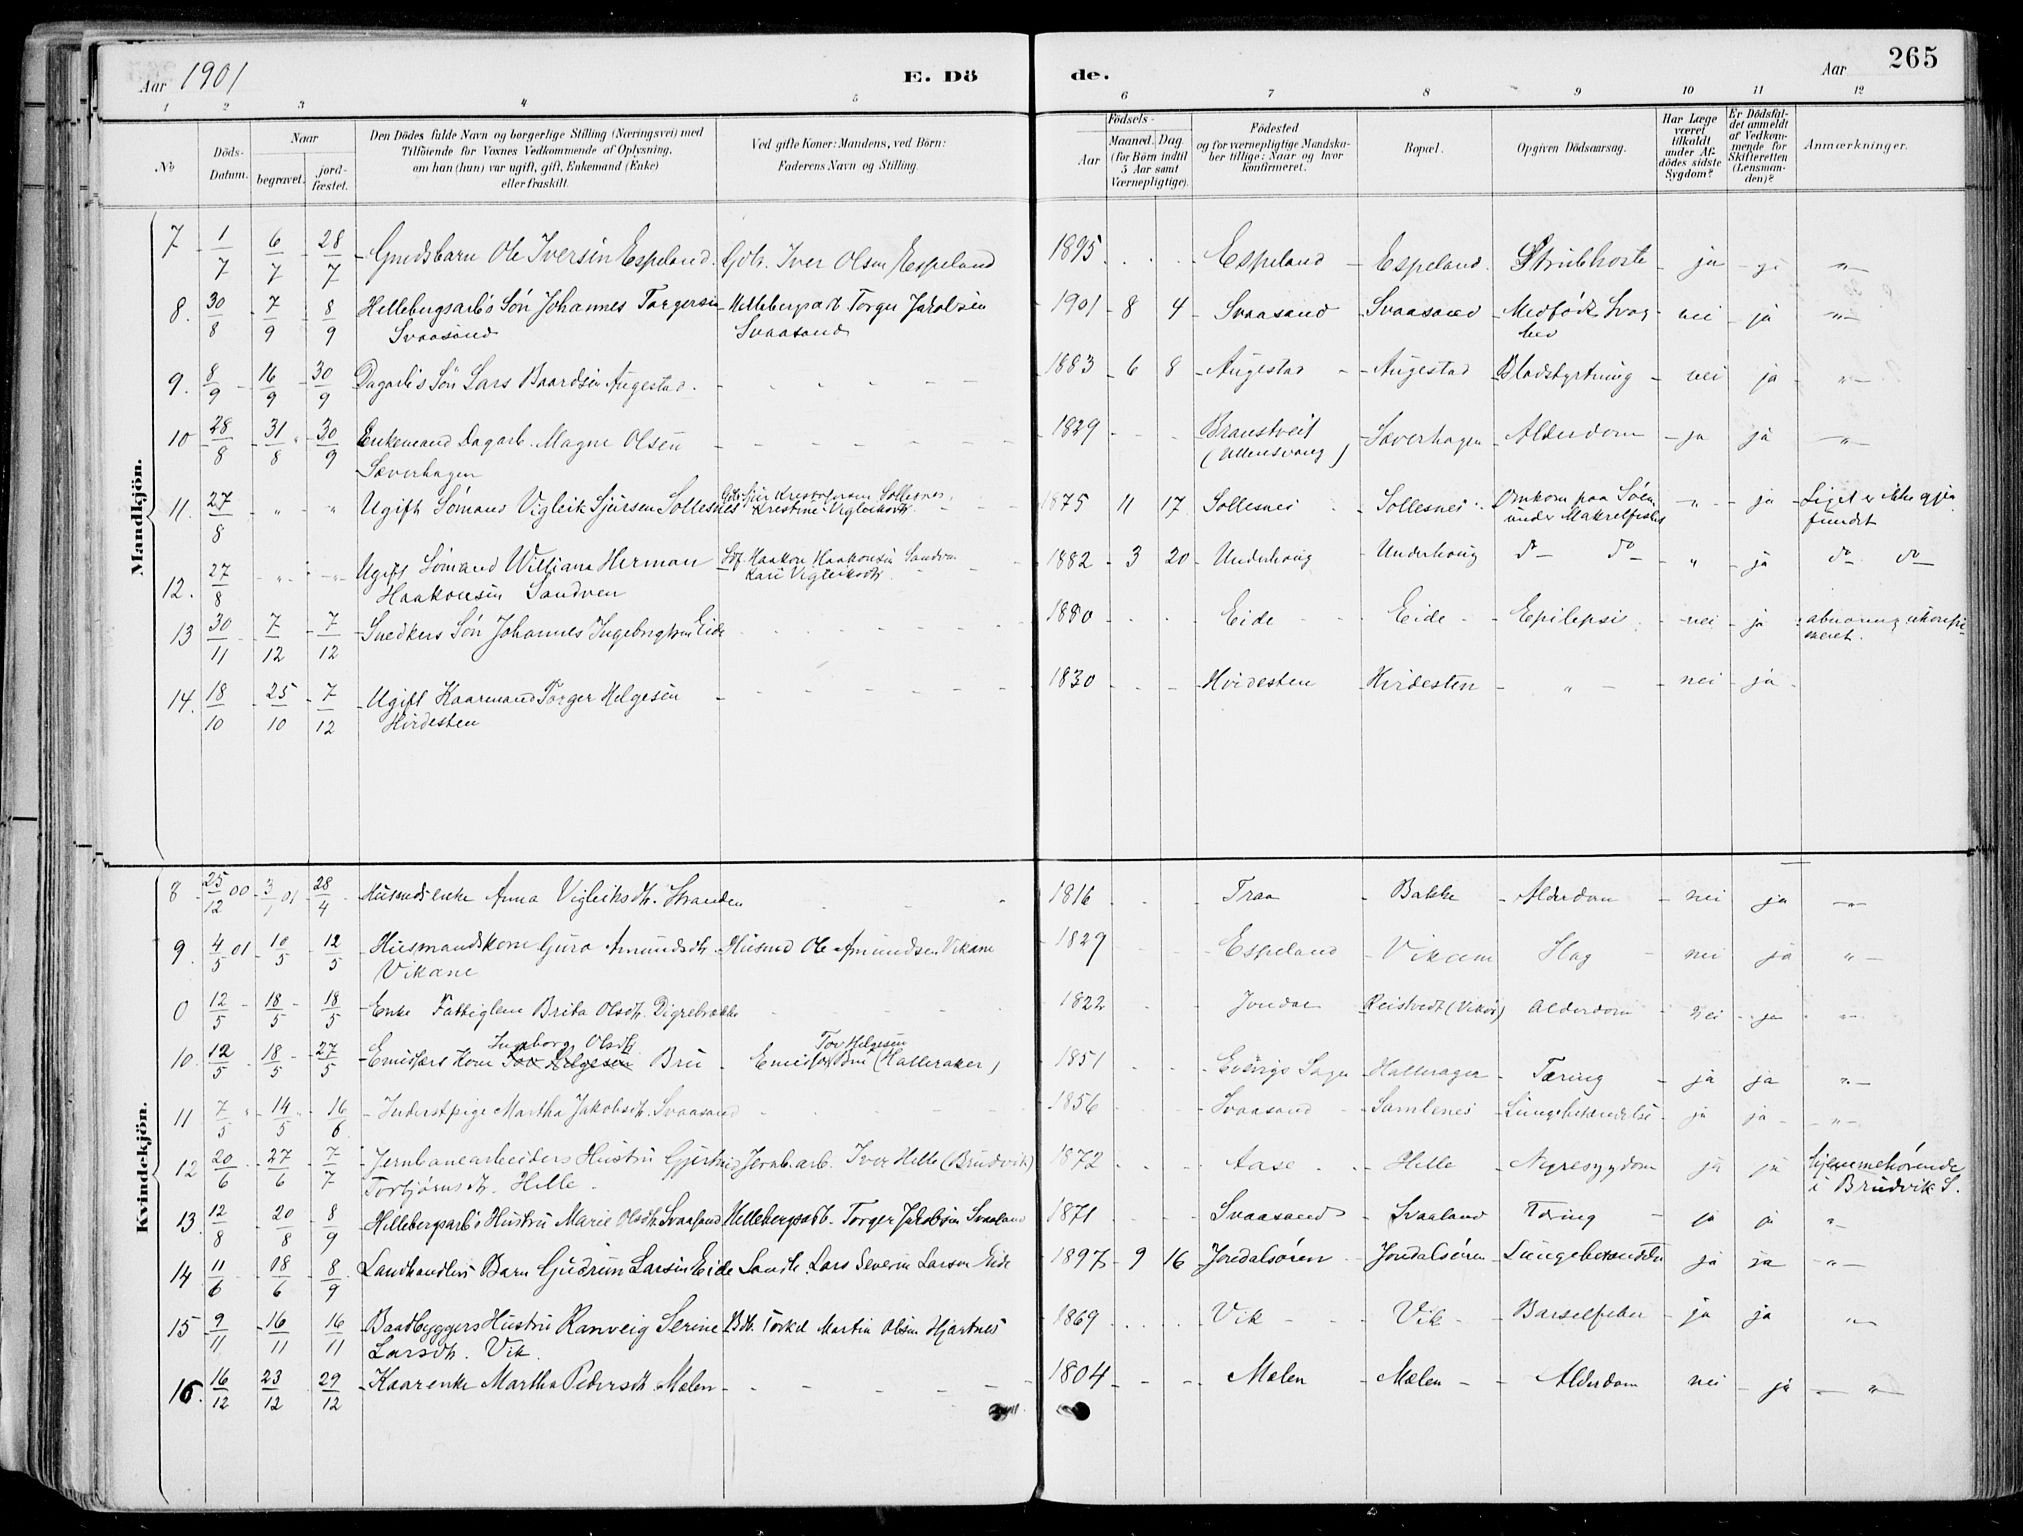 Aar 1901 E. Dö de. Aar 265
1 2 3 4 5 6 7 8 9 10 11 12
No Döds-Datum. Naar begravet. jordfæstet. Den Dödes fulde Navn og borgerlige Stilling (Næringsvei) med Tilföiende for Voxnes Vedkommende af Oplysning, om han (hun) var ugift, gift, Enkemand (Enke) eller fraskilt. Ved gifte Koner: Mandens, ved Börn: Faderens Navn og Stilling. Aar Födsels- Maaned. Dag. (for Börn indtil 5 Aar samt Værnepligtige). Födested og for værnepligtige Mandskaber tillige: Naar og hvor Konfirmeret. Bopæl. Opgiven Dödsaarsag. Har Læge været tilkaldt under Afdödes sidste Sygdom? Er Dödsfaldet anmeldt af Vedkommende for Skifteretten (Lensmanden)? Anmærkninger.
Mandkjön.
7 1/7 6/7 28/7 Grmdsbarn Ole Iversen Espeland. Gdb. Iver Olsen Espeland 1895 Espeland Espeland Strubhoste ja ja "
8. 30/8 7/9 8/9 Hellebergsarb's Søn Johannes Torgersen Hellebergsarb Torger Jakobsen 1901 8 4 Svaasand Svaasand Medfødt Svag nei ja "
Svaasand Svaasand hed
9. 8/9 16/9 30/9 Dagarb's Søn Lars Baardsen Augestad. 1883 6 8 Augestad Augestad Blodstyrtning nei ja "
10 28/8 31/8 30/9 Enkemand Dagarb. Magne Olsen 1829 Branstveit Sæverhagen Alderdom ja ja "
Sæverhagen (Ullensvang)
11. 27/8 " " Ugift Sømand Vigleik Sjursen Sollesnes Sjur Kristofersen Sollesnes, 1875 11 17 Sollesnes Sollesnes Omkom paa Søen " ja Liget er ikke gjen
Kristine Vigleiksdt. under Makrelfiske fundet
12. 27/8 " " Ugift Sømand William Herman Haakon Haakonsen Sandven 1882 3 20 Underhaug Underhaug do do " ja do do
Haakonsen Sandven Kari Vigleiksdt.
13 30/11 7/12 7/12 Snedkers Søn Johannes Ingebrigtsen Eide 1880 Eide Eide Epilepsi nei ja
14. 18/10 25/10 7/12 Ugift Kaarmand Torger Helgesen 1830 Hvidesten Hvidesten " nei ja
Hvidesten
Kvindekjön.
8 25/12 00 3/1 01 28/4 Husmds enke Anna Vigleiksdt. Stranden 1816 Traa Bakke Alderdom nei ja "
9. 4/5 01 10/5 12/5 Husmandskone Guro Amundsdt. Husmd Ole Amundsen Vikane 1829 Espeland Vikane nei ja "
Vikane
0 12/5 18/5 18/5 Enke Fattiglem Brita Olsdt. Digrebrække 1822 Jondal Reistvedt (Vikør) Alderdom nei ja "
10. 12/5 18/5 27/5 Kone Ingeborg Olsdt Tov Helgesen Bru Tov Helgesen Bru (Halleraker) 1851 Hallerager Tæring ja ja "
11 7/5 14/5 16/6 Inderstpige Martha Jakobsdt. Svaasand 1856 Svaasand Samlenes Lungebetændelse ja ja "
12 20/6 27/6 7/7 Jernbanearbeiders Hustru Gjertrud Jernb.arb. Iver Helle (Brudvik) 1872 Aase Helle Nyresygdom ja ja hjemmehørende
Torbjørnsdt. Helle. i Brudvik S.
13. 12/8 20/8 8/9 Hellebergsarb's Hustru Marie Olsdt. Svaasand Hellebergsarb. Torger Jakobsen Svaasand 1871 Svaasand Svaasand Tæring ja ja "
14 11/6 18/6 8/9 Landhandlers Barn Gudrun Larsen Eide Landh. Lars Severin Larsen Eide 1897 9 16 Jondalsøren Jondalsøren Lungebetændelse ja ja "
15 9/11 16/11 16/11 Baadbyggers Hustru Ranveig Serine Bdb. Torkel Martin Olsen Hjartnes 1869 Vik Vik Barselfeber ja ja "
Larsdt. Vik.
16. 16/12 23/12 29/12 Kaarenke Martha Pedersdt. Mælen 1804 Mælen Mælen Alderdom nei ja "